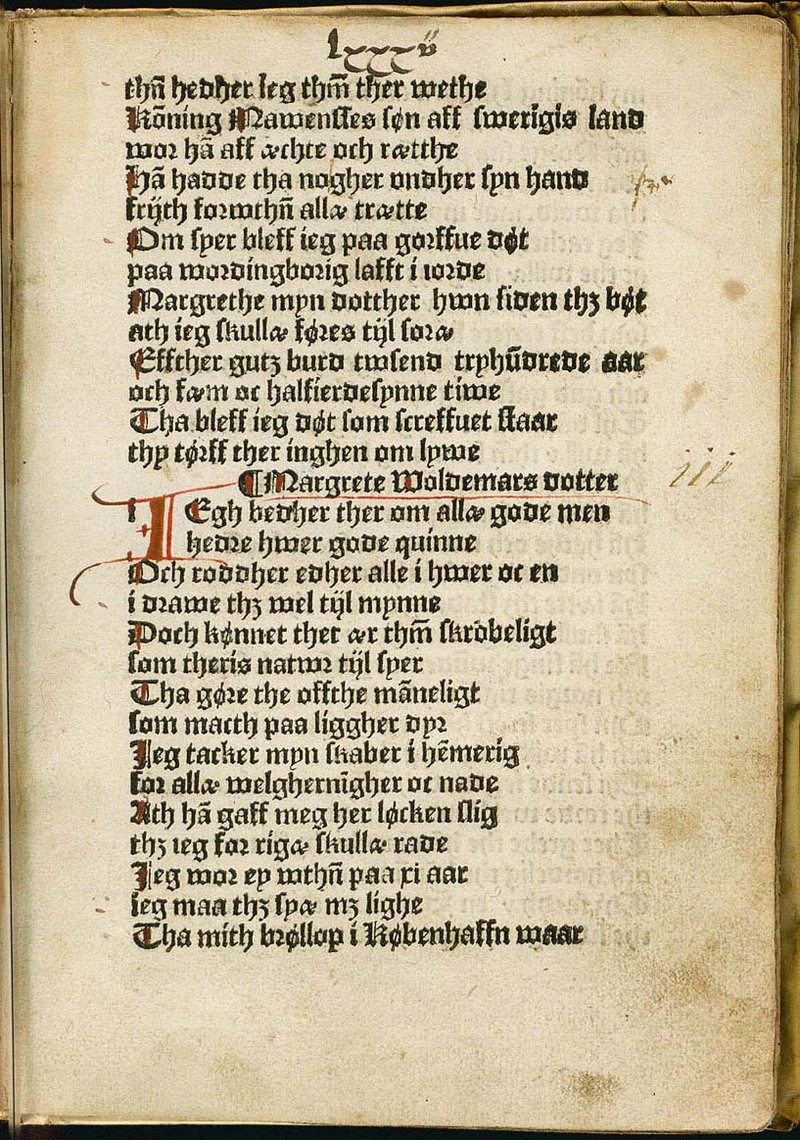 Lxxxii
thn̄ hedher ieg thm̄ ther wethe
Kōning Mawensses søn aff swerigis land
wor hā aff æchte och rætthe
Hā hadde tha nogher vndher syn hand
frijth forwthn̄ allæ trætte
Om syer bleff ieg paa gorffue døt
paa wordingborig lafft i iorde
Margrethe myn dotther hwn siden thꝫ bøt
ath ieg skullæ føres tijl soræ
Effther gutz burd twsend tryhūdrede aar
och fæm oc halfierdesynne tiwe
Tha bleff ieg døt som screffuet staar
thy tørff ther inghen om lywe
¶Margrete Woldemars dotter
IEgh bedher ther om allæ gode men
hedre hwer gode quinne
Och roddher edher alle i hwer oc en
i drawe thꝫ wel tijl mynne
Doch kønnet ther ær thm̄ skrøbeligt
som theris natwr tijl syer
Tha gøre the offthe māneligt
som macth paa liggher dyr
Jeg tacker myn skaber i hēmerig
for allæ welghernīgher oc nade
Ath hā gaff meg her løcken slig
thꝫ ieg for rigæ skullæ rade
Jeg wor ey wthn̄ paa xi aar
ieg maa thꝫ syæ mꝫ lighe
Tha mith brøllop i Københaffn waar
iii